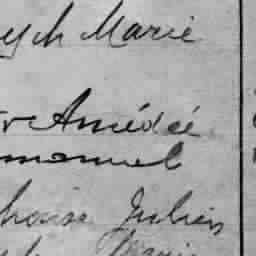 ych Marie
r Amédée
mmanuel
honse Julien
Marie